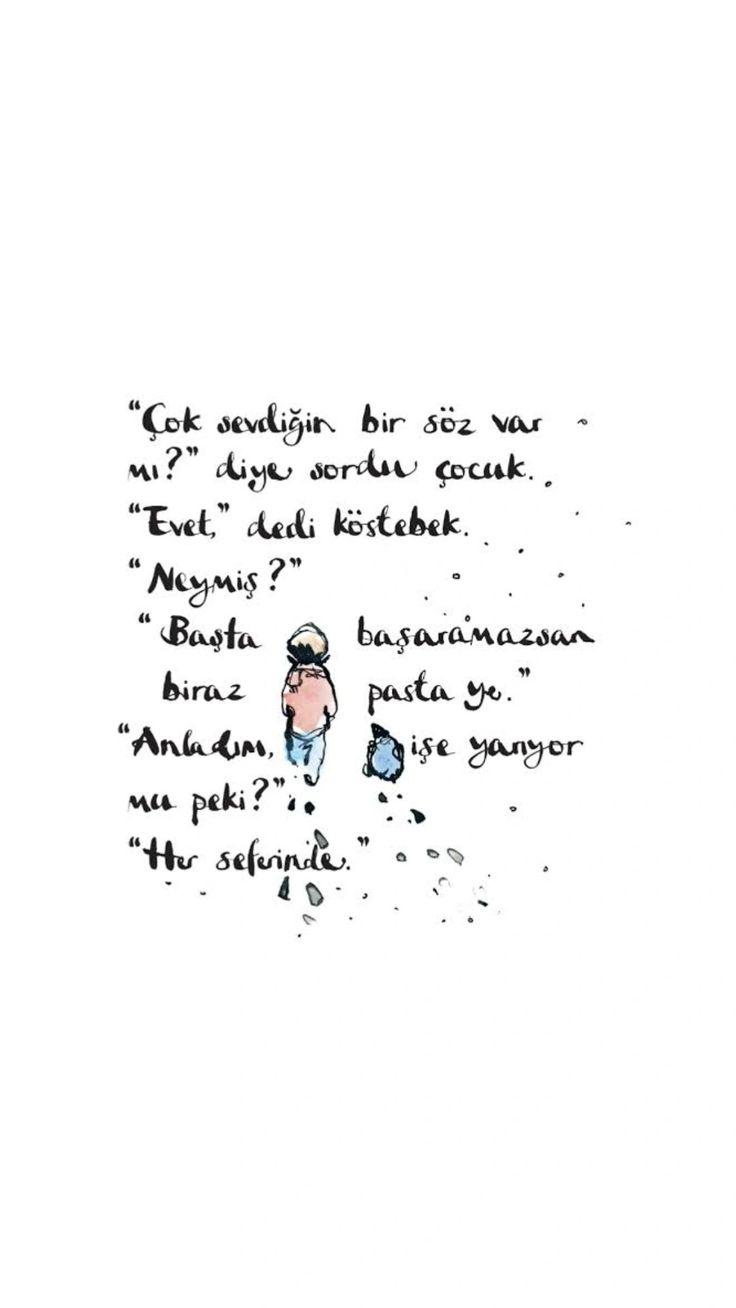 “Çok sevdiğin bir söz var
mı?” diye sordu çocuk.
“Evet,” dedi köstebek.
“Neymiş?”
“Başta başaramazsan
biraz pasta ye.”
“Anladım, işe yarıyor
mu peki?”
“Her seferinde.”